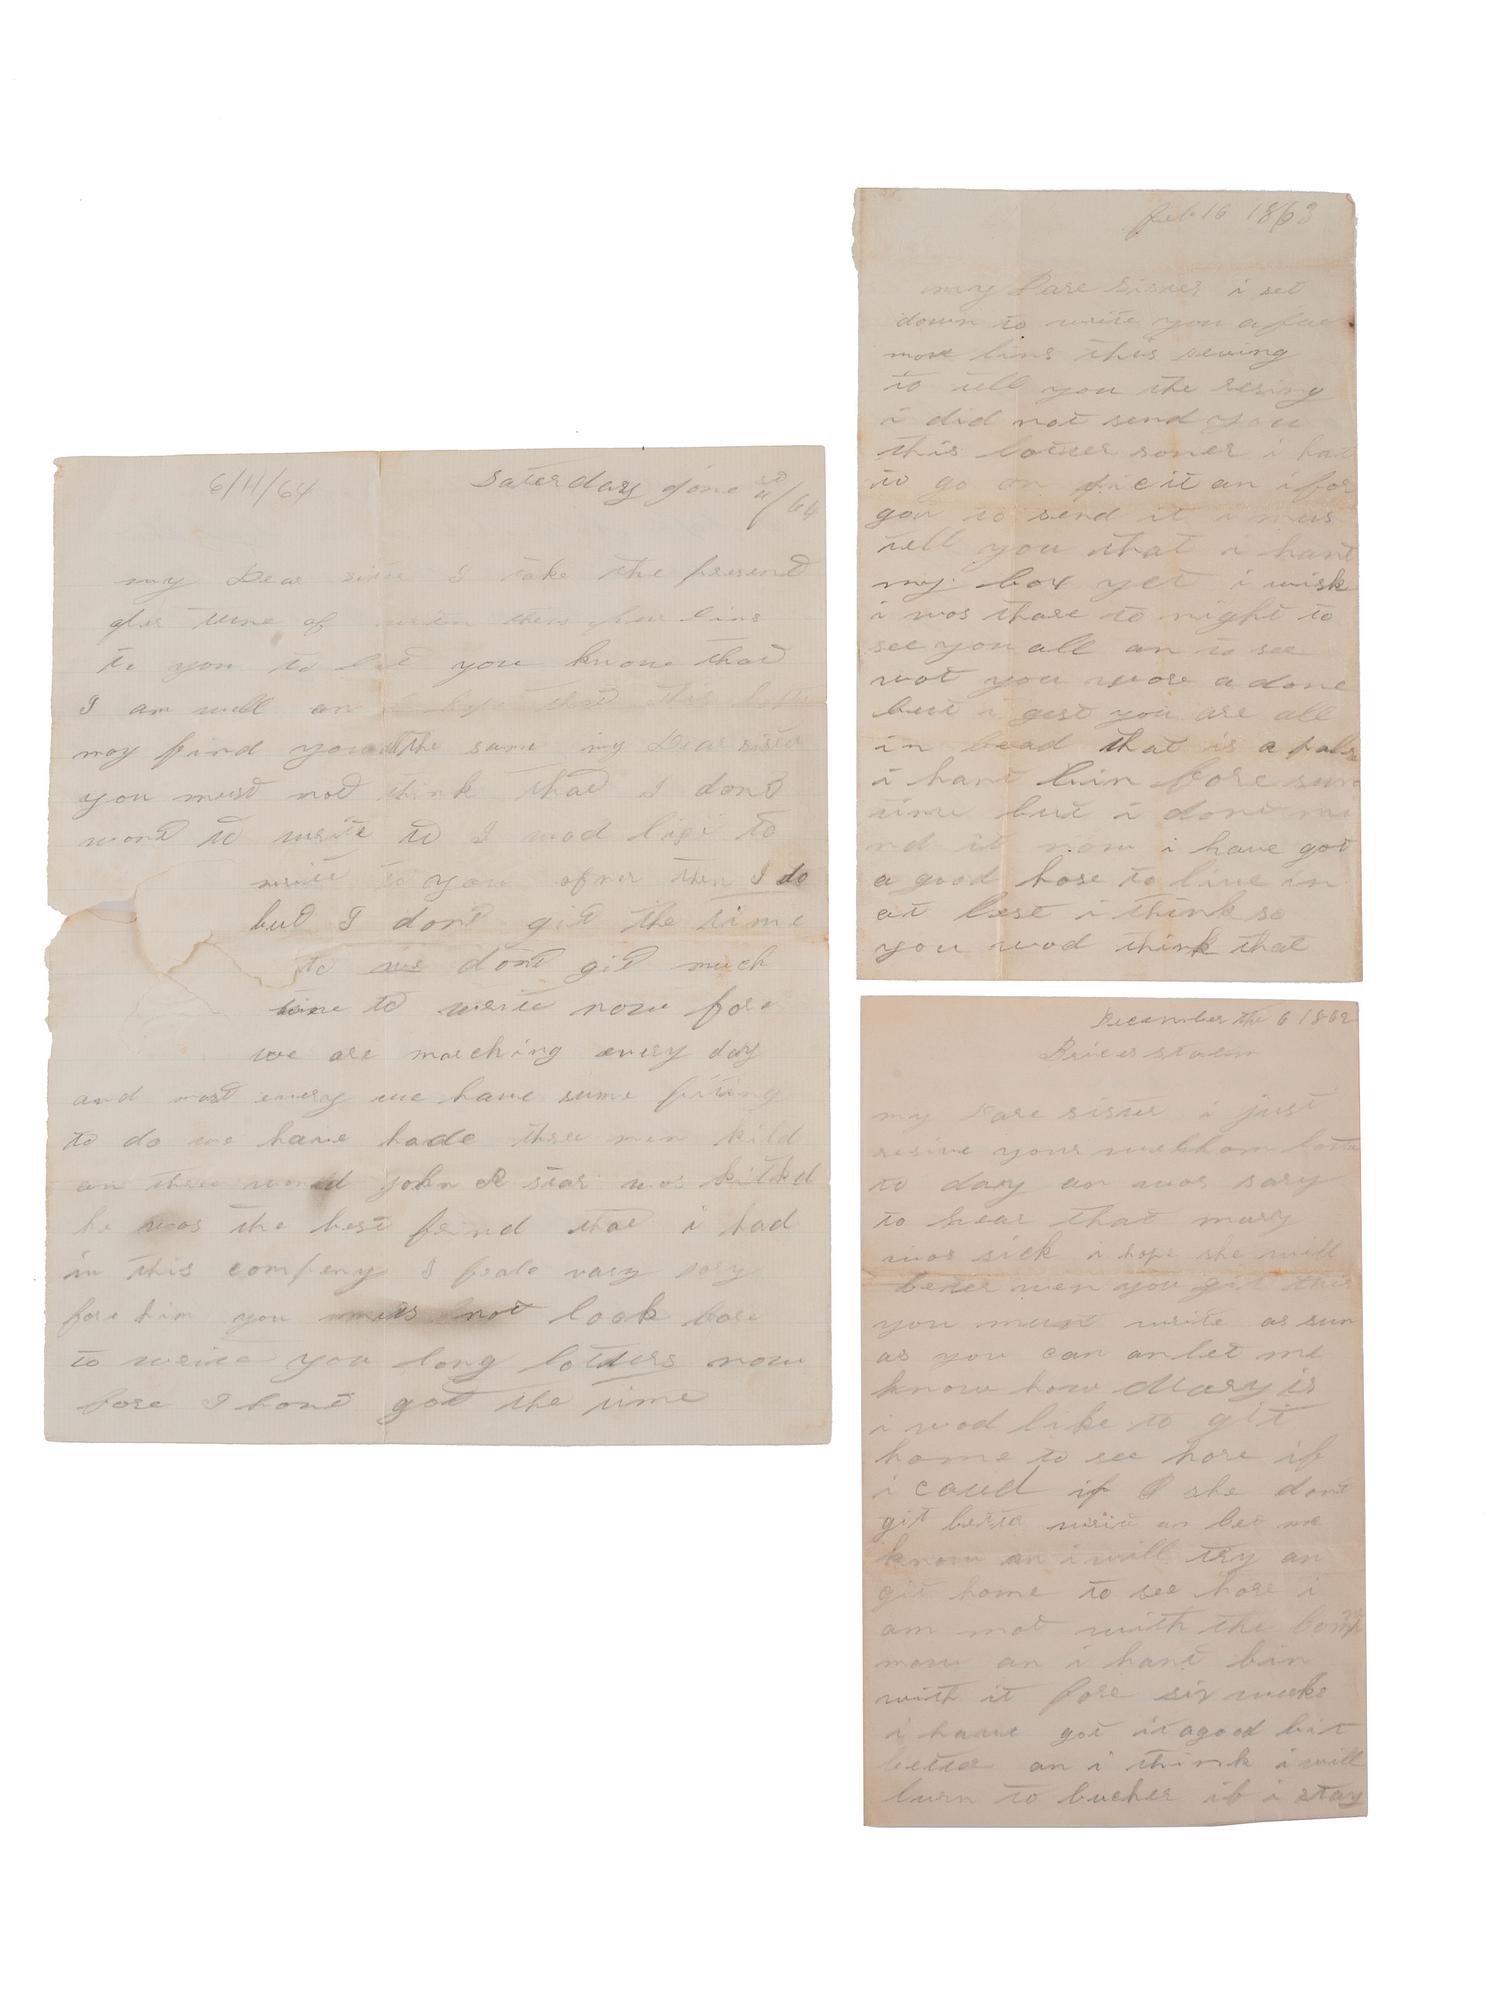 6/11/64
Saterday June 11/64
my Dear sister I take the present
oper tune of writen thes few lins
to you to let you know that
I am well an i hope that this letter
may find you all the same my Dear sister
you must not think that I dont
wont to write to I wod like to
write to you ofner then I do
but I dont git the time
to we dont git much
time to write now fore
we are marching every day
and most every we have sume fiting
to do we have hade three men kild
an three wond john R star wos kitled
he wos the best frind that i had
in this compeny I feale vary sory
fore him you mus not look fore
to write you long lotters now
fore I hont got the time
feb 16 1863
my Dare Sister i set
down to write you a fue
more lins this eeving
to tell you the resing
i did not send you
this lotter soner i hat
to go on picit an i for
got to send it i mus
tell you that i hant
my box yet i wish
i wos thare to night to
see you all an to see
wot you wore a done
but i gest you are all
in bead that is a pals
i hant bin fore sum
time but i dont mi
nd it now i have got
a good hose to live in
at lest i think so
you wod think that
December the 6 1862
my Dare sister i just
resive your welkhom lotter
to day an wos sary
to hear that mary
wos sick i hope she will
beter wen you git this
you must write as sun
as you can an let me
know how Mary is
i wod like to git
home to see hore if
i coud if I she dont
git better write an let me
know an i will try an
git home to see hore i
am not with the comp
now an i hant bin
with it fore six weeks
i have got it agood bit
better an i think i will
lurn to bucher if i stay